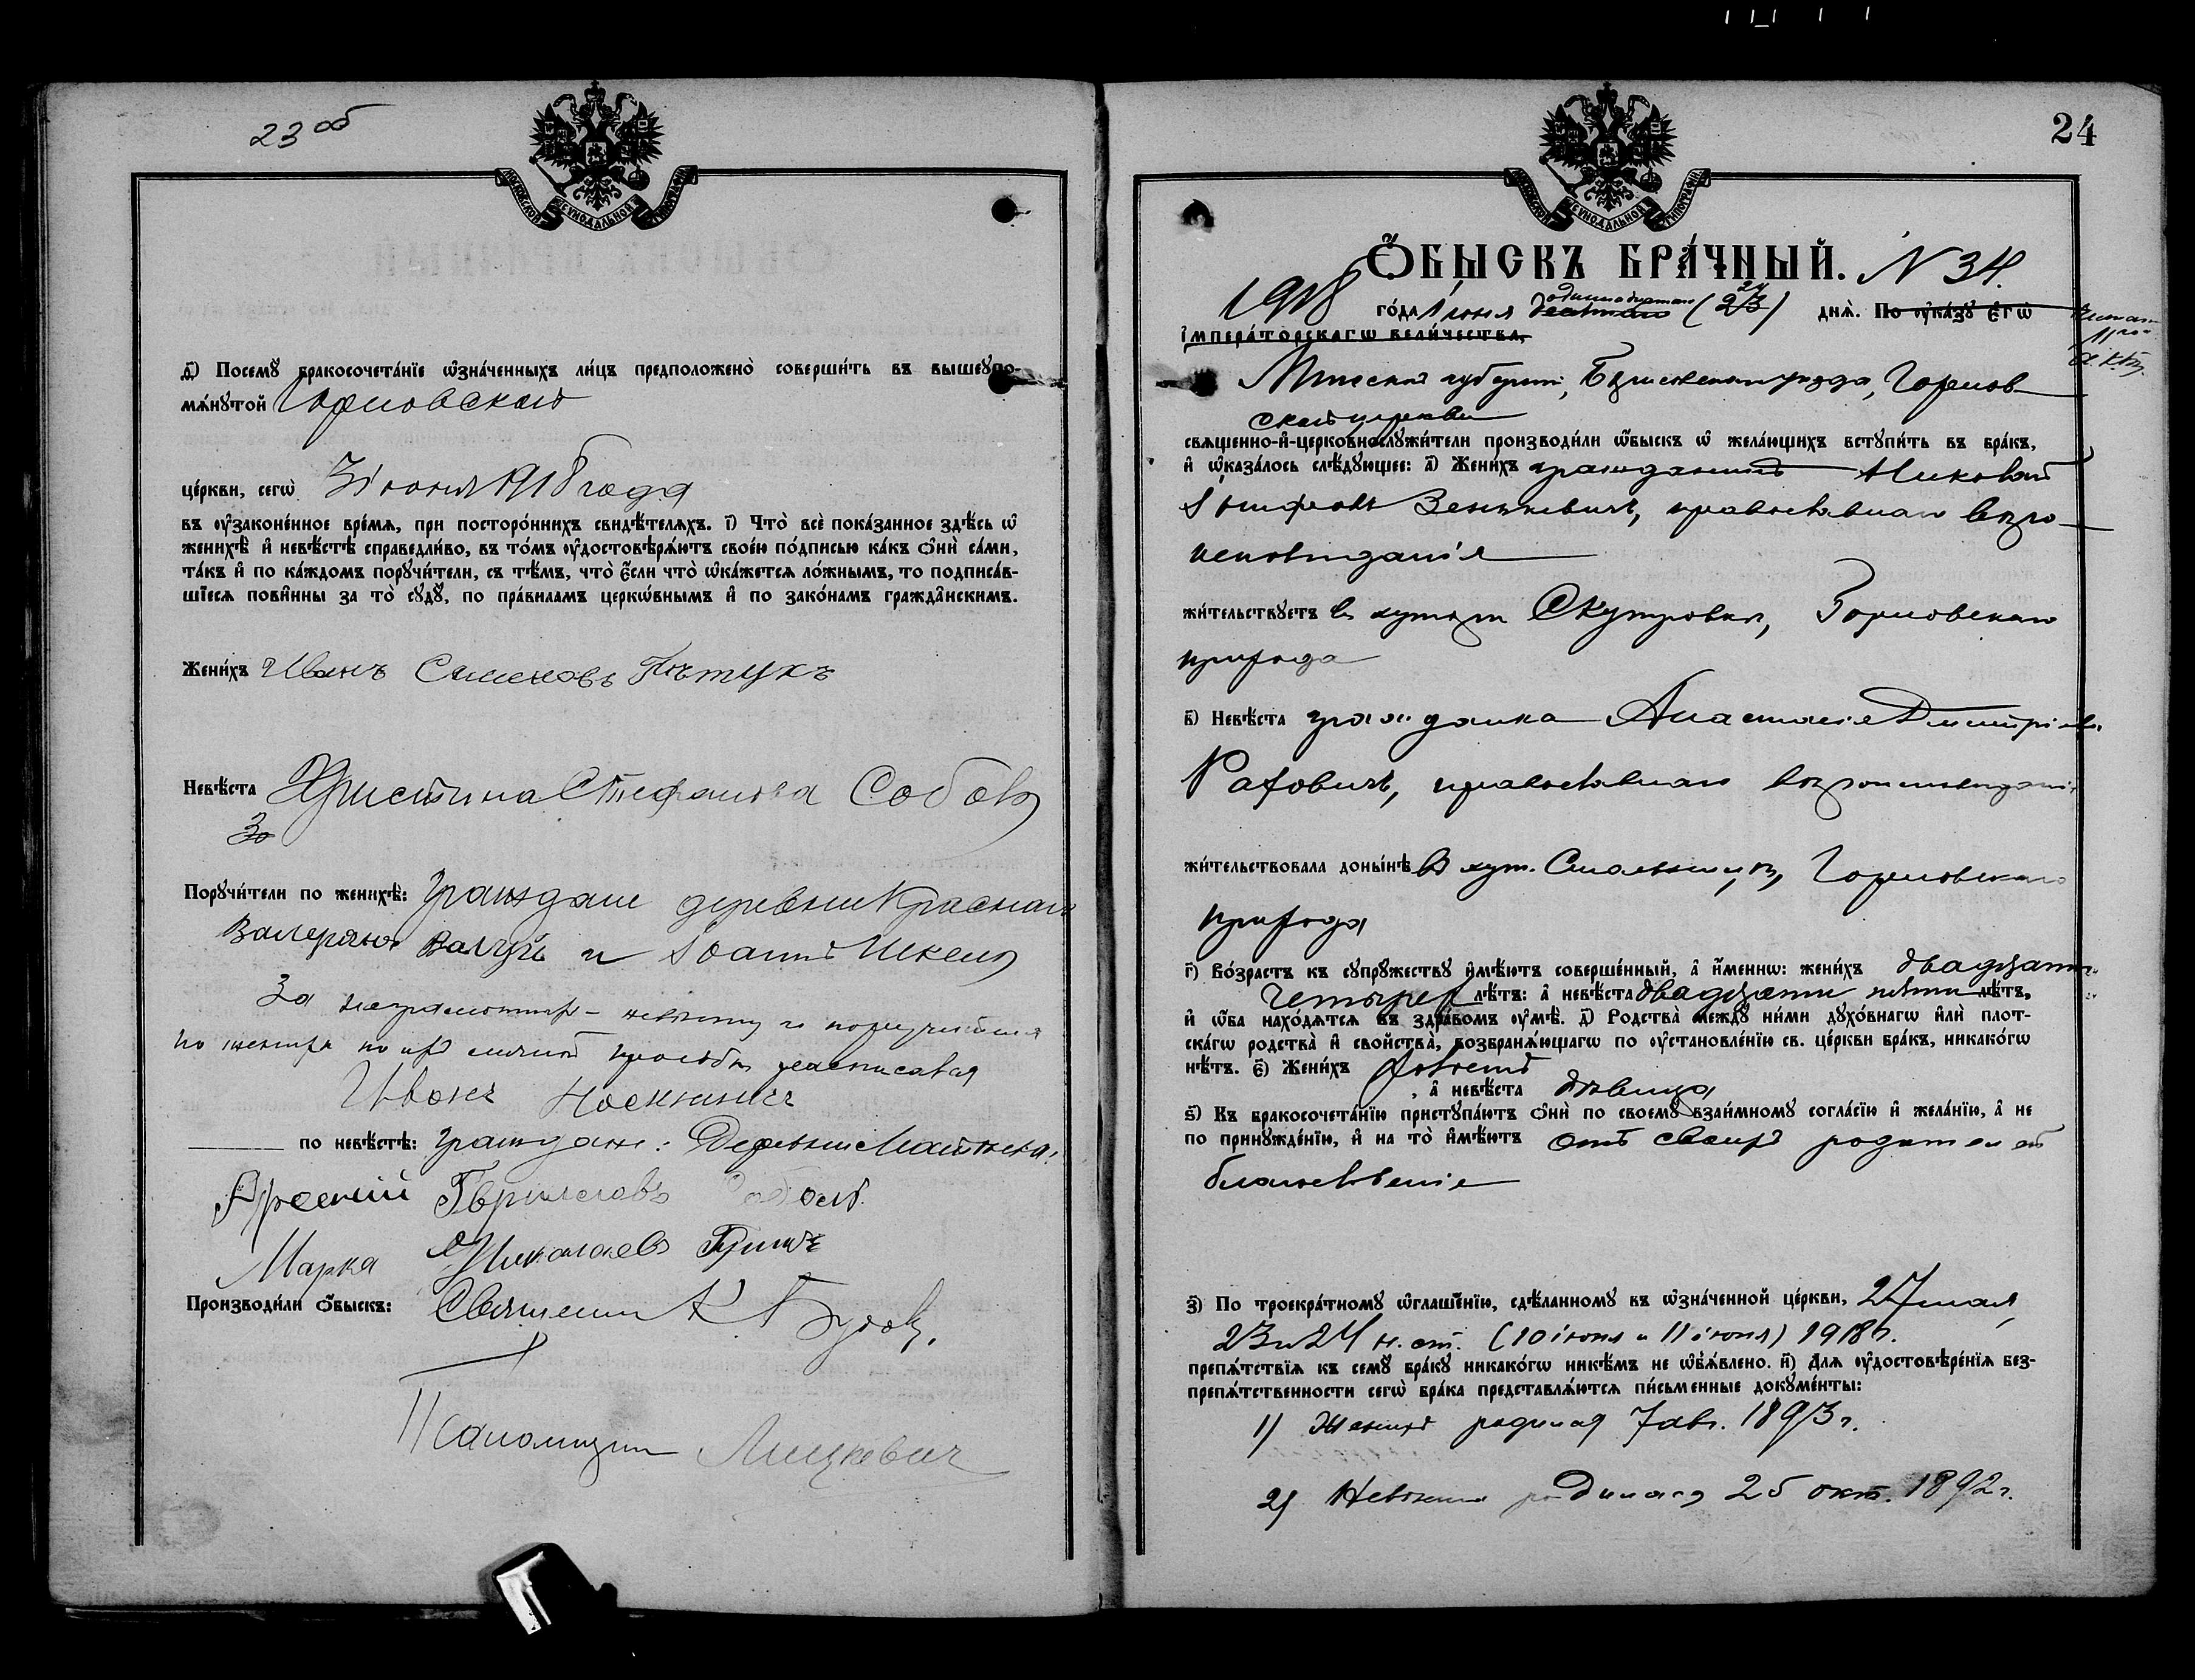 23 об
МОСКОВСКОЙ СѴНОДАЛЬНОЙ ТИПОГРАФІИ
д҃) Посемꙋ бракосочета́нїе ѡ҆зна́ченныхъ ли́цъ предположено̀ соверши́ть въ вышеꙋпо-
мѧ́нꙋтой Горновской
це́ркви, сегѡ̀ 3 іюня 1918 года
въ ᲂу҆зако́не́нное вре́мѧ, при посторо́ннихъ свидѣ́телѧхъ. і҃) Что̀ всѐ пока́занное здѣ́сь ѡ҆
женихѣ̀ и҆ невѣ́стѣ справедли́во, въ то́мъ ᲂу҆достовѣрѧ́ютъ свое́ю по́дписью ка́къ ѻ҆нѝ са́ми,
та́къ и҆ по ка́ждомъ порꙋчи́тели, съ тѣ́мъ, что̀ є҆́сли что̀ ѡ҆ка́жетсѧ ло́жнымъ, то подписа́в-
шїесѧ пови́нны за то̀ сꙋдꙋ̀, по пра́виламъ церкѡ́внымъ и҆ по зако́намъ гражда́нскимъ.
Жени́хъ Иванъ Семеновъ Пѣтухъ
Невѣ́ста Христина Стефанова Соболь
За
Порꙋчи́тели по женихѣ̀: Граждане деревни Красная
Валерянъ и Іоаннъ Шкель
За неграмотныхъ - невѣсту и поручителя
по женихѣ по ихъ личной просьбѣ росписался
Иванъ
по невѣ́стѣ: Граждане: Деревни
Арсеній Соболь
Марка Николаевъ
Производи́ли ѻ҆́быскъ: Священникъ
Псаломщикъ Лицкевич
24
МОСКОВСКОЙ СѴНОДАЛЬНОЙ ТИПОГРАФІИ
Ѻ҆́БЫСКЪ БРА́ЧНЫЙ. N 34.
одиннадцатаго 24
1918 го́да Іюня десятаго (23) днѧ̀. По ᲂу҆ка́зꙋ є҆гѡ̀
і҆мпера́торскагѡ вели́чества,
Минской губерніи, уѣзда, Горнов
ской церкви
свѧще́нно-и҆-церковнослꙋжи́тели производи́ли ѻ҆́быскъ ѡ҆ жела́ющихъ встꙋпи́ть въ бра́къ,
и҆ ѡ҆каза́лось слѣ́дꙋющее: а҃) Жени́хъ гражданинъ Николай
Зенькевичъ, православнаго вѣро
исповѣданія
жи́тельствꙋетъ въ хуторѣ Скутровка, Горновскаго
прихода
в҃) Невѣ́ста гражданка Анастасія Димитріева
Рахович, православнаго вѣроисповѣданія
жи́тельствовала доны́нѣ въ хут. Смольница, Горновскаго
прихода
г҃) Во́зрастъ къ сꙋпрꙋ́жествꙋ и҆мѣ́ютъ соверше́нный, а҆ и҆́меннѡ: жени́хъ двадцати
четырех лѣ́тъ: а҆ невѣ́ста двадцати пяти лѣ́тъ,
и҆ ѻ҆́ба нахо́дѧтсѧ въ здра́вомъ ᲂу҆мѣ̀. д҃) Родства̀ междꙋ̀ ни́ми дꙋхо́внагѡ и҆лѝ плот-
ска́гѡ родства̀ и҆ сво́йства̀, возбранѧ́ющагѡ по ᲂу҆становле́нїю св. це́ркви бра́къ, никако́гѡ
нѣ́тъ. є҃) Жени́хъ холостъ
, а҆ невѣ́ста дѣвица
ѕ҃) Къ бракосочета́нїю пристꙋпа́ютъ ѻ҆нѝ по своемꙋ̀ взаи́мномꙋ согла́сїю и҆ жела́нїю, а҆ не
по принꙋжде́нїю, и҆ на то̀ и҆мѣ́ютъ отъ своихъ родителей
благословеніе
з҃) По троекра́тномꙋ ѡ҆глаше́нїю, сдѣ́ланномꙋ въ ѡ҆зна́ченной це́ркви, 27 мая,
23 и 24 н. ст. (10 іюня и 11 іюня) 1918 г.
препѧ́тствїѧ къ семꙋ̀ бра́кꙋ никако́гѡ нике́мъ не ѡ҆б̾ѧ́влено. и҃) Длѧ ᲂу҆достовѣре́нїѧ без-
препѧ́тственности сегѡ̀ бра́ка представлѧ́ютсѧ пи́сьменные докꙋме́нты:
1) Женихъ родился 7 авг. 1893 г.
2) Невѣста родилась 25 окт. 1892 г.